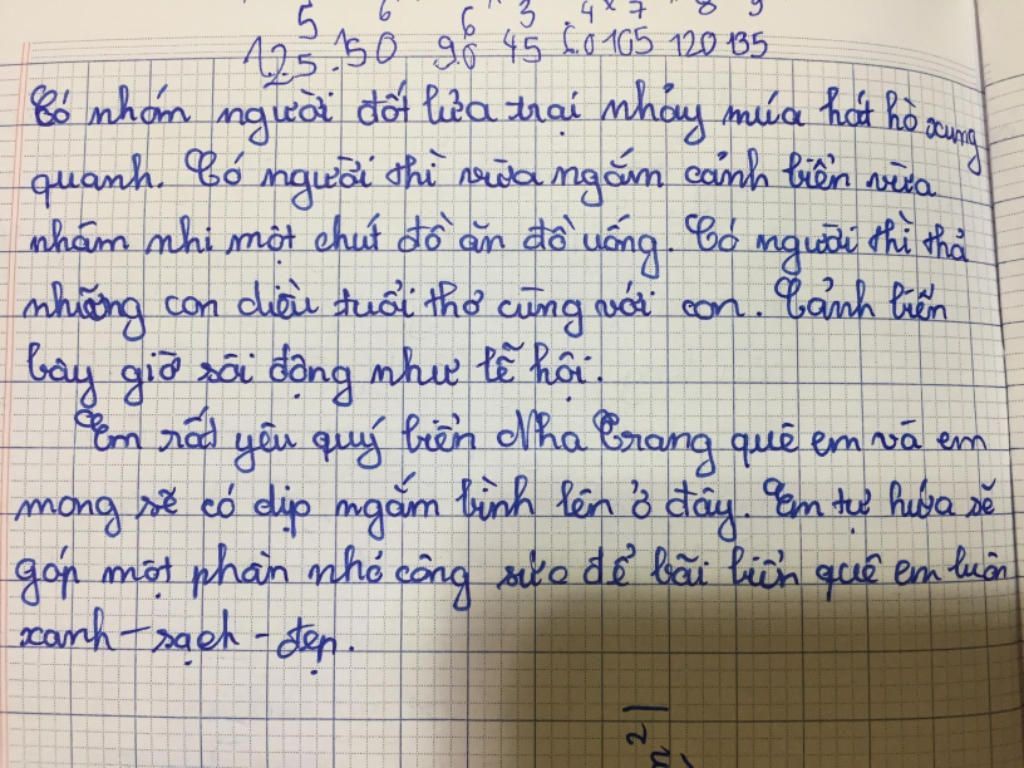 5 6 6 3 4 × 7 8 9
125 : 50 96 45 60 105 120 135
Có nhóm người đốt lửa trại nhảy múa hát hò xung
quanh. Có người thì vừa ngắm cảnh biển vừa
nhâm nhi một chút đồ ăn đồ uống. Có người thì thả
những con diều tuổi thơ cùng với con. Cảnh biển
bây giờ sôi động như lễ hội.
Em rất yêu quý biển Nha Trang quê em và em
mong sẽ có dịp ngắm bình lên ở đây. Em tự hứa sẽ
góp một phần nhỏ công sức để bãi biển quê em luôn
xanh - sạch - đẹp.
2